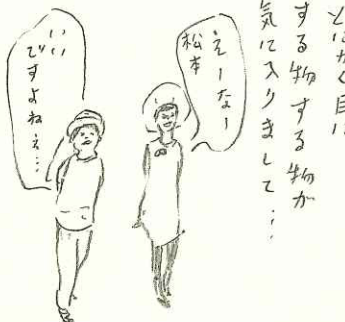 とにかく目に
する物する物が
気に入りまして…
えーなー
松本
いい
ですよねぇ…